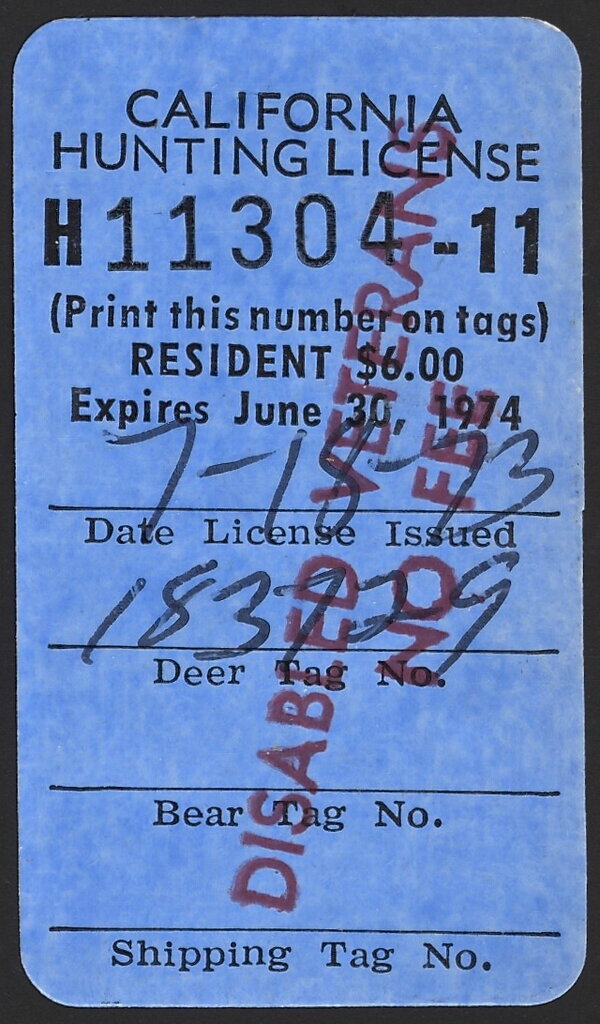 CALIFORNIA
HUNTING LICENSE
H11304-11
(Print this number on tags)
RESIDENT $6.00
Expires June 30, 1974
7-18-73
Date License Issued
183729
Deer Tag No.
Bear Tag No.
Shipping Tag No.
DISABLED VETERANS
NO FEE